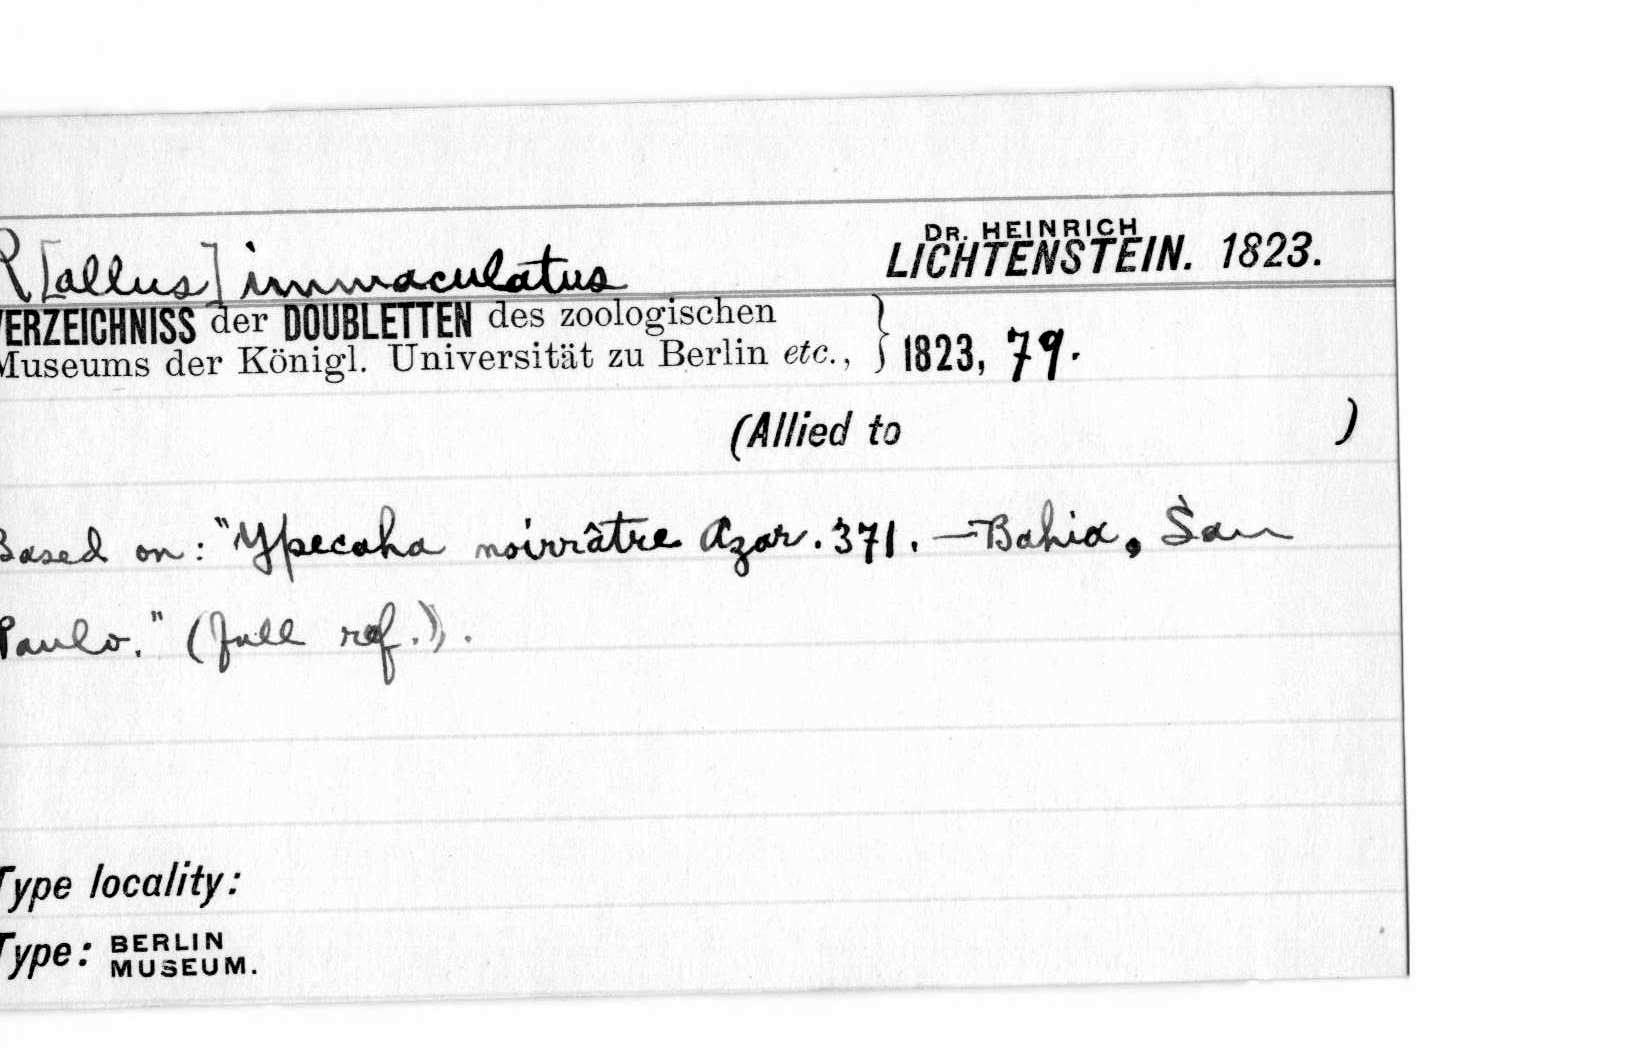 R[allus] immaculatus
DR. HEINRICH
LICHTENSTEIN. 1823.
VERZEICHNISS der DOUBLETTEN des zoologischen
Museums der Königl. Universität zu Berlin etc., } 1823, 79.
(Allied to )
Based on: "Ypecaha noirrâtre Azar. 371. — Bahia, San
Paulo." (full ref.).
Type locality:
Type: BERLIN
MUSEUM.